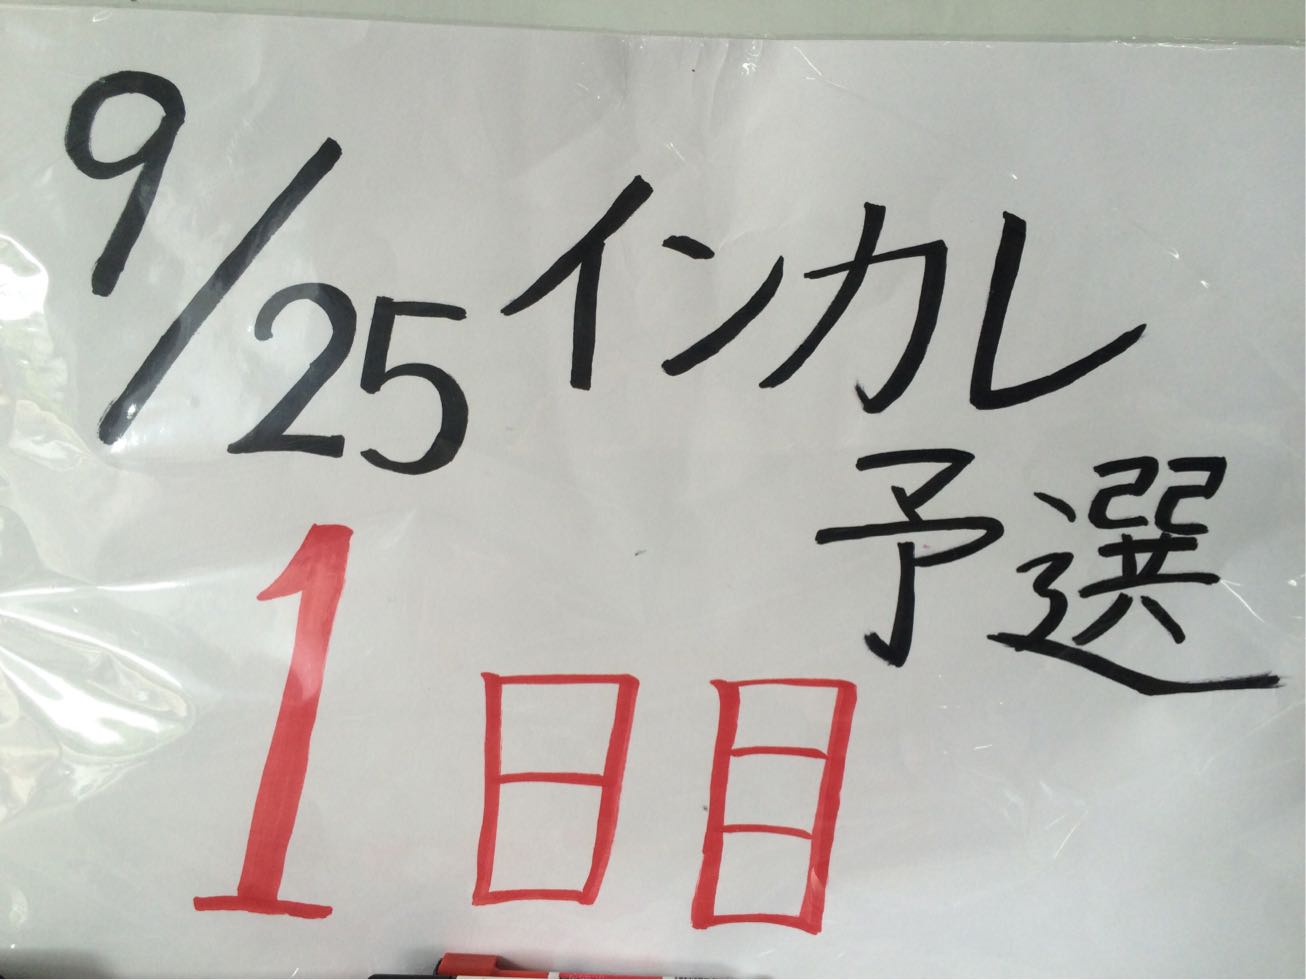 9/25 インカレ
予選
1日目